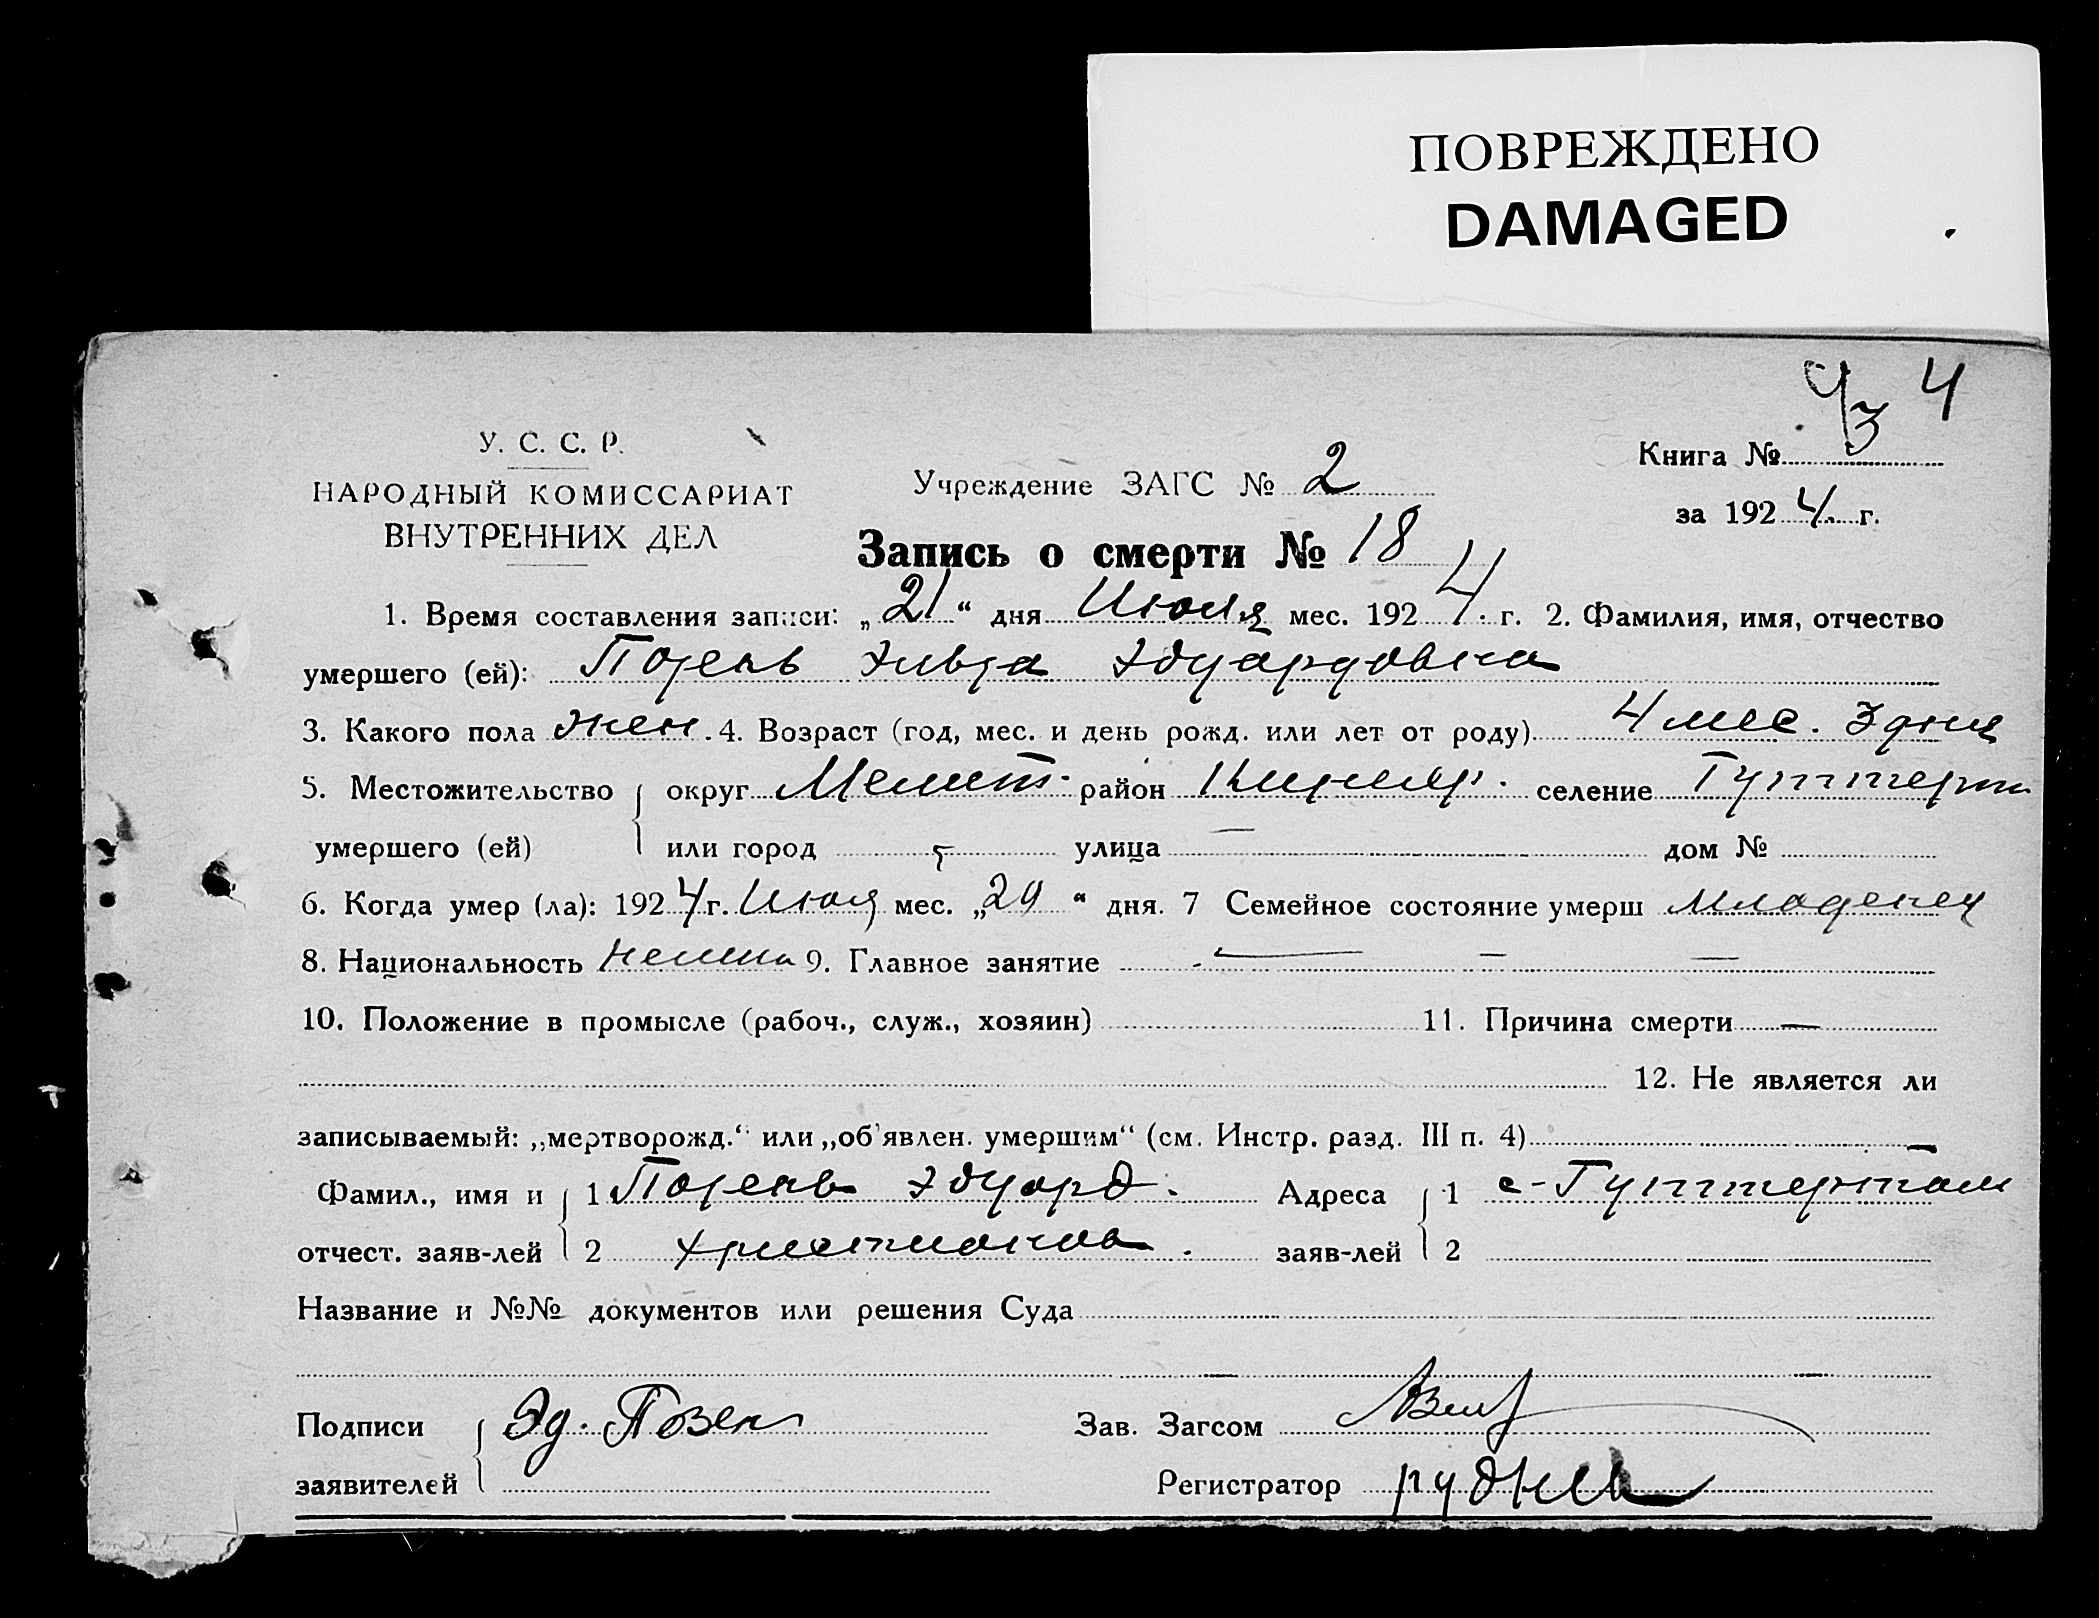 ПОВРЕЖДЕНО
DAMAGED
4
У. С. С. Р.
НАРОДНЫЙ КОМИССАРИАТ
ВНУТРЕННИХ ДЕЛ
Учреждение ЗАГС № 2
Книга № 3
за 1924 г.
Запись о смерти № 18
1. Время составления записи: „21“ дня Июля мес. 1924 г. 2. Фамилия, имя, отчество
умершего (ей): Эдуардовна
3. Какого пола жен. 4. Возраст (год, мес. и день рожд. или лет от роду) 4 мес. 3 дня
5. Местожительство округ Мелит. район селение Гуттерта
умершего (ей) или город — улица — дом №
6. Когда умер (ла): 1924 г. Июля мес. „20“ дня. 7 Семейное состояние умерш младенец
8. Национальность немка 9. Главное занятие — — —
10. Положение в промысле (рабоч., служ., хозяин) 11. Причина смерти —
12. Не является ли
записываемый: „мертворожд.“ или „об'явлен. умершим“ (см. Инстр. разд. III п. 4) —
Фамил., имя и 1 Эдуард. Адреса 1 с-Гуттерталь
отчест. заяв-лей 2 заяв-лей 2
Название и №№ документов или решения Суда
Подписи Эд. Позен Зав. Загсом
заявителей Регистратор